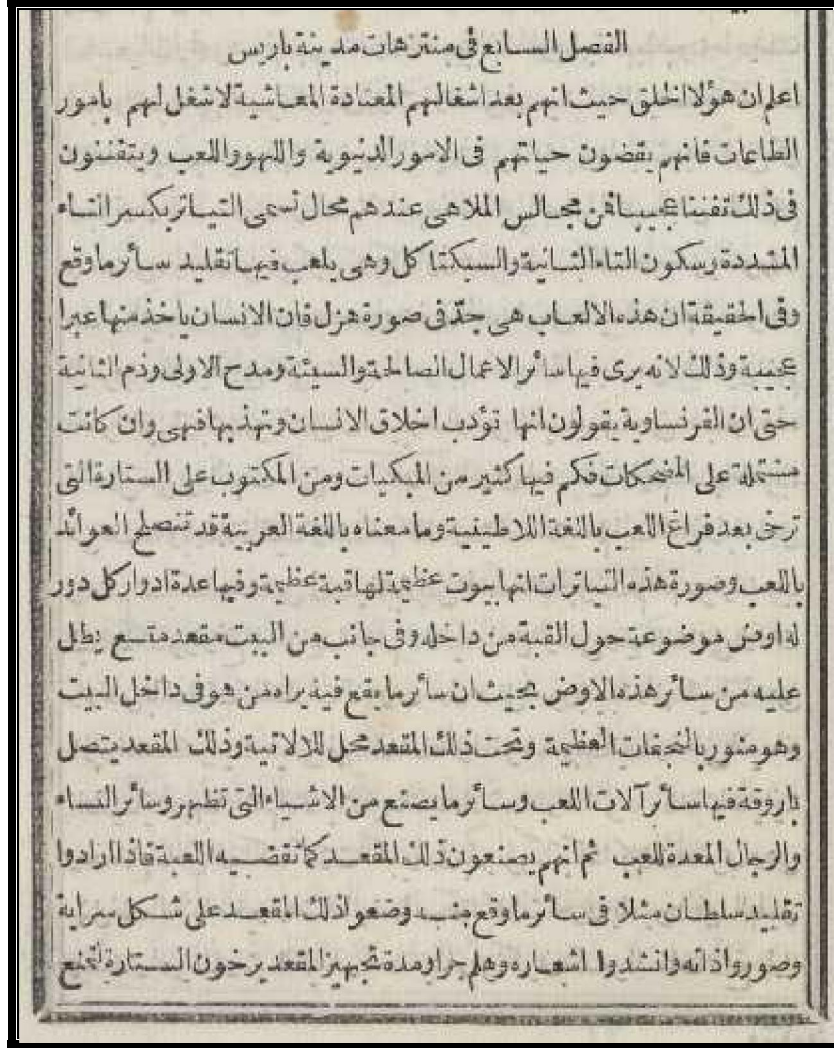 الفصل السابع في منتزهات مدينة باريس
اعلم ان هؤلا الخلق حيث انهم بعد اشغالهم المعتادة المعاشية لا شغل لهم بامور
الطاعات فانهم يقضون حياتهم في الامور الدنيوية واللهو واللعب ويتفننون
في ذلك تفننا عجيبا فمن مجالس الملاهي عندهم محال تسمى التياتر بكسر التاء
المشددة وسكون التاء الثانية والسبكتاكل وهي يلعب فيها تقليد سائر ما وقع
وفي الحقيقة ان هذه الالعاب هي جدّ في صورة هزل فان الانسان ياخذ منها عبرا
عجيبة وذلك لانه يرى فيها سائر الاعمال الصالحة والسيئة ومدح الاولى وذم الثانية
حتى ان الفرنساوية يقولون انها تؤدب اخلاق الانسان وتهذبها فهي وان كانت
مشتملة على المضحكات فكم فيها كثير من المبكيات ومن المكتوب على الستارة التي
ترخى بعد فراغ اللعب باللغة اللاطينية وما معناه باللغة العربية قد تنصلح العوائد
باللعب وصورة هذه التياترات انها بيوت عظيمة لها قبة عظيمة وفيها عدة ادوار كل دور
له اوض موضوعة حول القبة من داخله وفي جانب من البيت مقعد متسع يطل
عليه من سائر هذه الاوض بحيث ان سائر ما يقع فيه يراه من هو في داخل البيت
وهو منور بالنجفات العظيمة وتحت ذلك المقعد محل للالاتية وذلك المقعد يتصل
باروقة فيها سائر آلات اللعب وسائر ما يصنع من الاشياء التي تظهر وسائر النساء
والرجال المعدة للعب ثم انهم يصنعون ذلك المقعد كما تقضيه اللعبة فاذا ارادوا
تقليد سلطان مثلا في سائر ما وقع منه وضعوا ذلك المقعد على شكل سراية
وصوروا ذاته وانشدوا اشعاره وهلم جرا ومدة تجهيز المقعد يرخون الستارة لتمنع